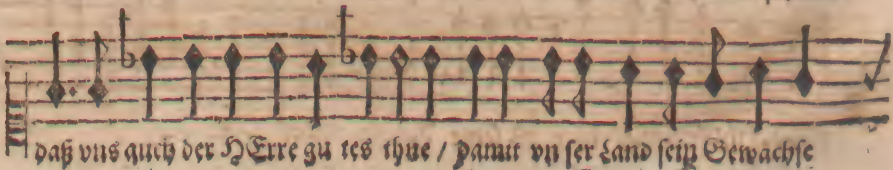 daß vns auch der HErre gu tes thue / damit vn ser Land sein Gewächse